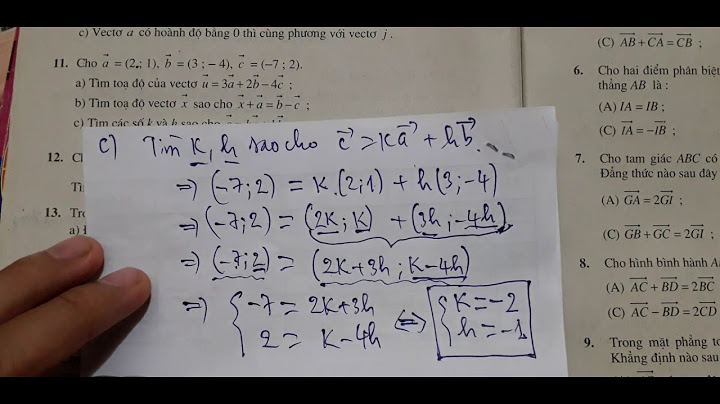 c) Vectơ a⃗ có hoành độ bằng 0 thì cùng phương với vectơ j⃗.
11. Cho a⃗ = (2 ; 1), b⃗ = (3 ; – 4), c⃗ = (–7 ; 2).
a) Tìm toạ độ của vectơ u⃗ = 3a⃗ + 2b⃗ – 4c⃗ ;
b) Tìm toạ độ vectơ x⃗ sao cho x⃗ + a⃗ = b⃗ – c⃗ ;
c) Tìm các số k và h sao cho
12.
13.
a)
c) Tìm K, h sao cho c⃗ = Ka⃗ + hb⃗.
⇒ (-7;2) = K.(2;1) + h(3;-4)
⇒ (-7;2) = (2K;K) + (3h;-4h)
⇒ (-7;2) = (2K+3h; K-4h)
⇒ { -7 = 2K+3h ⇔ { K = -2
2 = K-4h h = -1
(C) AB⃗ + CA⃗ = CB⃗ ;
6. Cho hai điểm phân biệt
thẳng AB là :
(A) IA = IB ;
(C) IA⃗ = –IB⃗ ;
7. Cho tam giác ABC có
Đẳng thức nào sau đây
(A) GA⃗ = 2GI⃗ ;
(C) GB⃗ + GC⃗ = 2GI⃗ ;
8. Cho hình bình hành
(A) AC⃗ + BD⃗ = 2BC⃗
(C) AC⃗ – BD⃗ = 2CD⃗
9. Trong mặt phẳng
Khẳng định nào sau